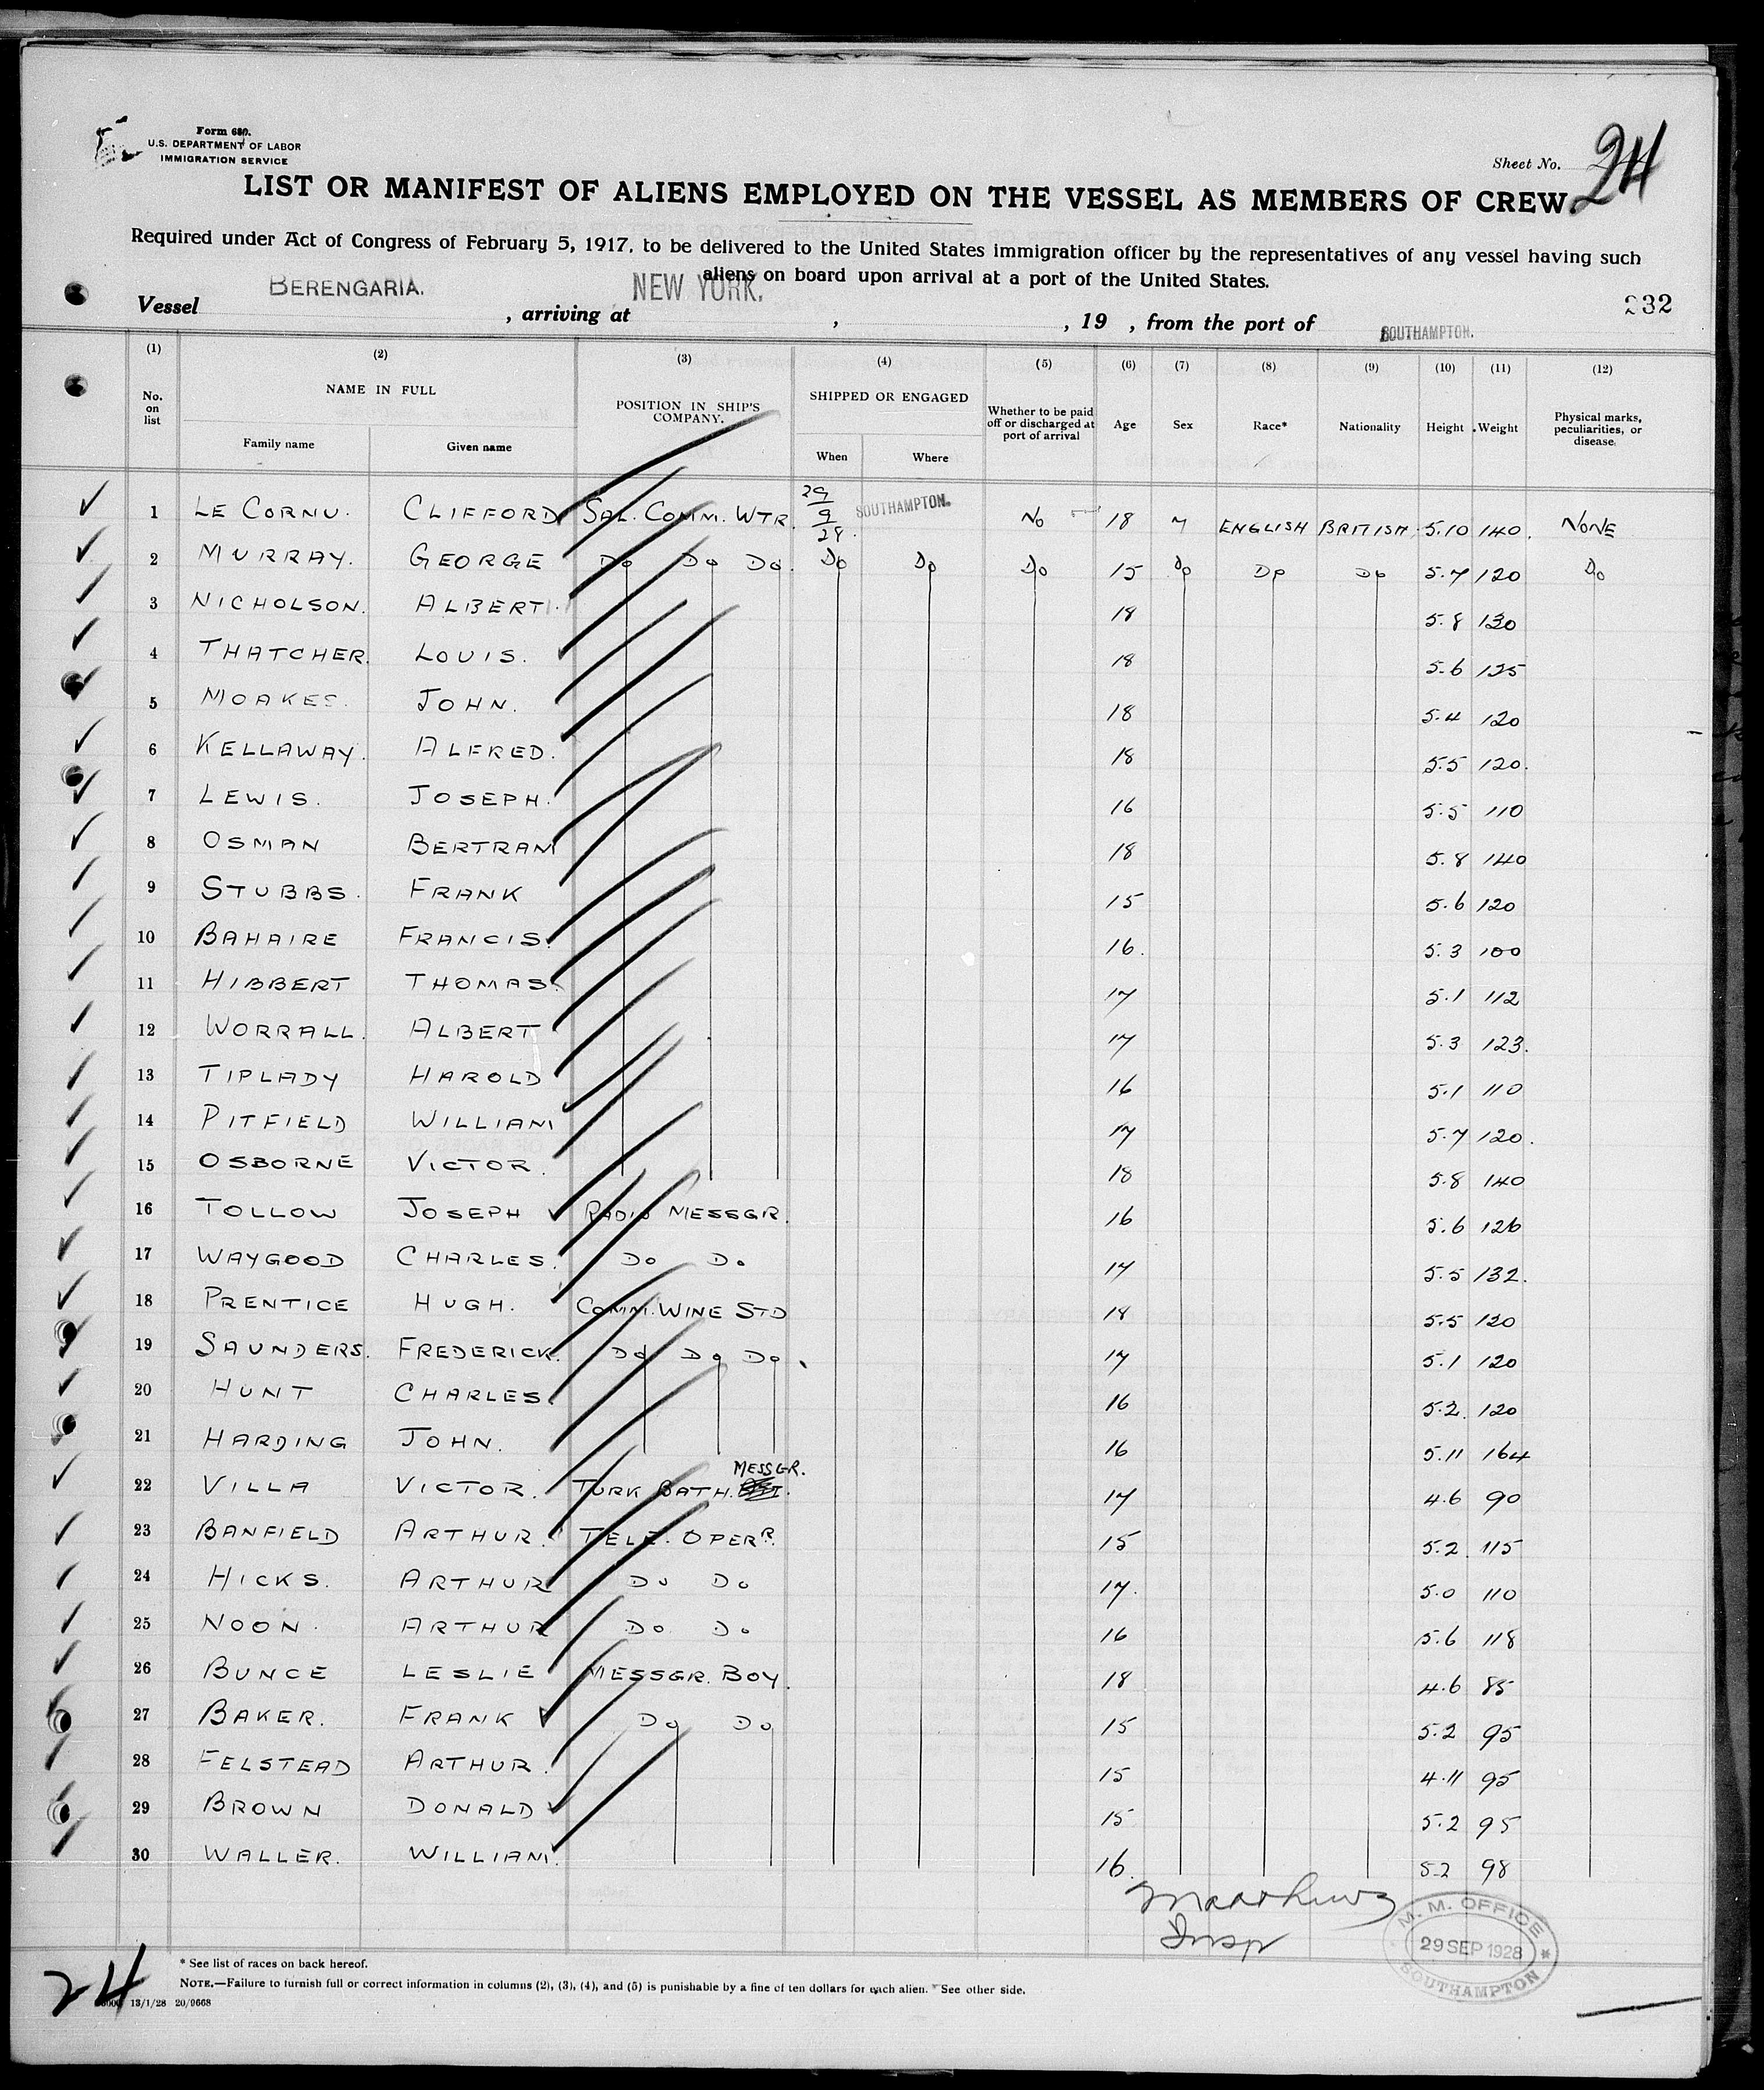 Form 680.
U.S. DEPARTMENT OF LABOR
IMMIGRATION SERVICE
Sheet No. 24
LIST OR MANIFEST OF ALIENS EMPLOYED ON THE VESSEL AS MEMBERS OF CREW
Required under Act of Congress of February 5, 1917, to be delivered to the United States immigration officer by the representatives of any vessel having such
aliens on board upon arrival at a port of the United States.
Vessel BERENGARIA. , arriving at NEW YORK. , , 19 , from the port of SOUTHAMPTON.
232
(1) (2) (3) (4) (5) (6) (7) (8) (9) (10) (11) (12)
No. on list NAME IN FULL Family name Given name POSITION IN SHIP'S COMPANY. SHIPPED OR ENGAGED When Where Whether to be paid off or discharged at port of arrival Age Sex Race* Nationality Height Weight Physical marks, peculiarities, or disease
1 LE CORNU. CLIFFORD SAL. COMM. WTR. 29/9/28. SOUTHAMPTON. NO 18 M ENGLISH BRITISH 5.10 140. NONE
2 MURRAY. GEORGE DO DO DO. DO DO DO 15 DO DO DO 5.7 120 DO
3 NICHOLSON. ALBERT. 18 5.8 130
4 THATCHER. LOUIS. 18 5.6 125
5 MOAKES. JOHN. 18 5.4 120
6 KELLAWAY. ALFRED. 18 5.5 120.
7 LEWIS. JOSEPH. 16 5.5 110
8 OSMAN BERTRAM 18 5.8 140
9 STUBBS. FRANK 15 5.6 120
10 BAHAIRE FRANCIS. 16. 5.3 100
11 HIBBERT THOMAS. 17 5.1 112
12 WORRALL. ALBERT 17 5.3 123.
13 TIPLADY HAROLD 16 5.1 110
14 PITFIELD WILLIAM 17 5.7 120.
15 OSBORNE VICTOR. 18 5.8 140
16 TOLLOW JOSEPH RADIO MESSGR. 16 5.6 126
17 WAYGOOD CHARLES. DO DO 17 5.5 132.
18 PRENTICE HUGH. COMM. WINE STD 18 5.5 120
19 SAUNDERS. FREDERICK. DO DO DO 17 5.1 120
20 HUNT CHARLES. 16 5.2. 120
21 HARDING JOHN. 16 5.11 164
22 VILLA VICTOR. TURK BATH. MESSGR. 17 4.6 90
23 BANFIELD ARTHUR. TELE. OPERR. 15 5.2. 115
24 HICKS. ARTHUR DO DO 17. 5.0 110
25 NOON. ARTHUR DO. DO 16 5.6 118
26 BUNCE LESLIE MESSGR. BOY. 18 4.6 85
27 BAKER. FRANK DO DO 15 5.2 95
28 FELSTEAD ARTHUR. 15 4.11 95
29 BROWN DONALD 15 5.2 95
30 WALLER. WILLIAM. 16. 5.2 98
Matthews
Insp
M. M. OFFICE
29 SEP 1928
SOUTHAMPTON
24
* See list of races on back hereof.
NOTE.—Failure to furnish full or correct information in columns (2), (3), (4), and (5) is punishable by a fine of ten dollars for each alien. See other side.
13/1/28 20/9668